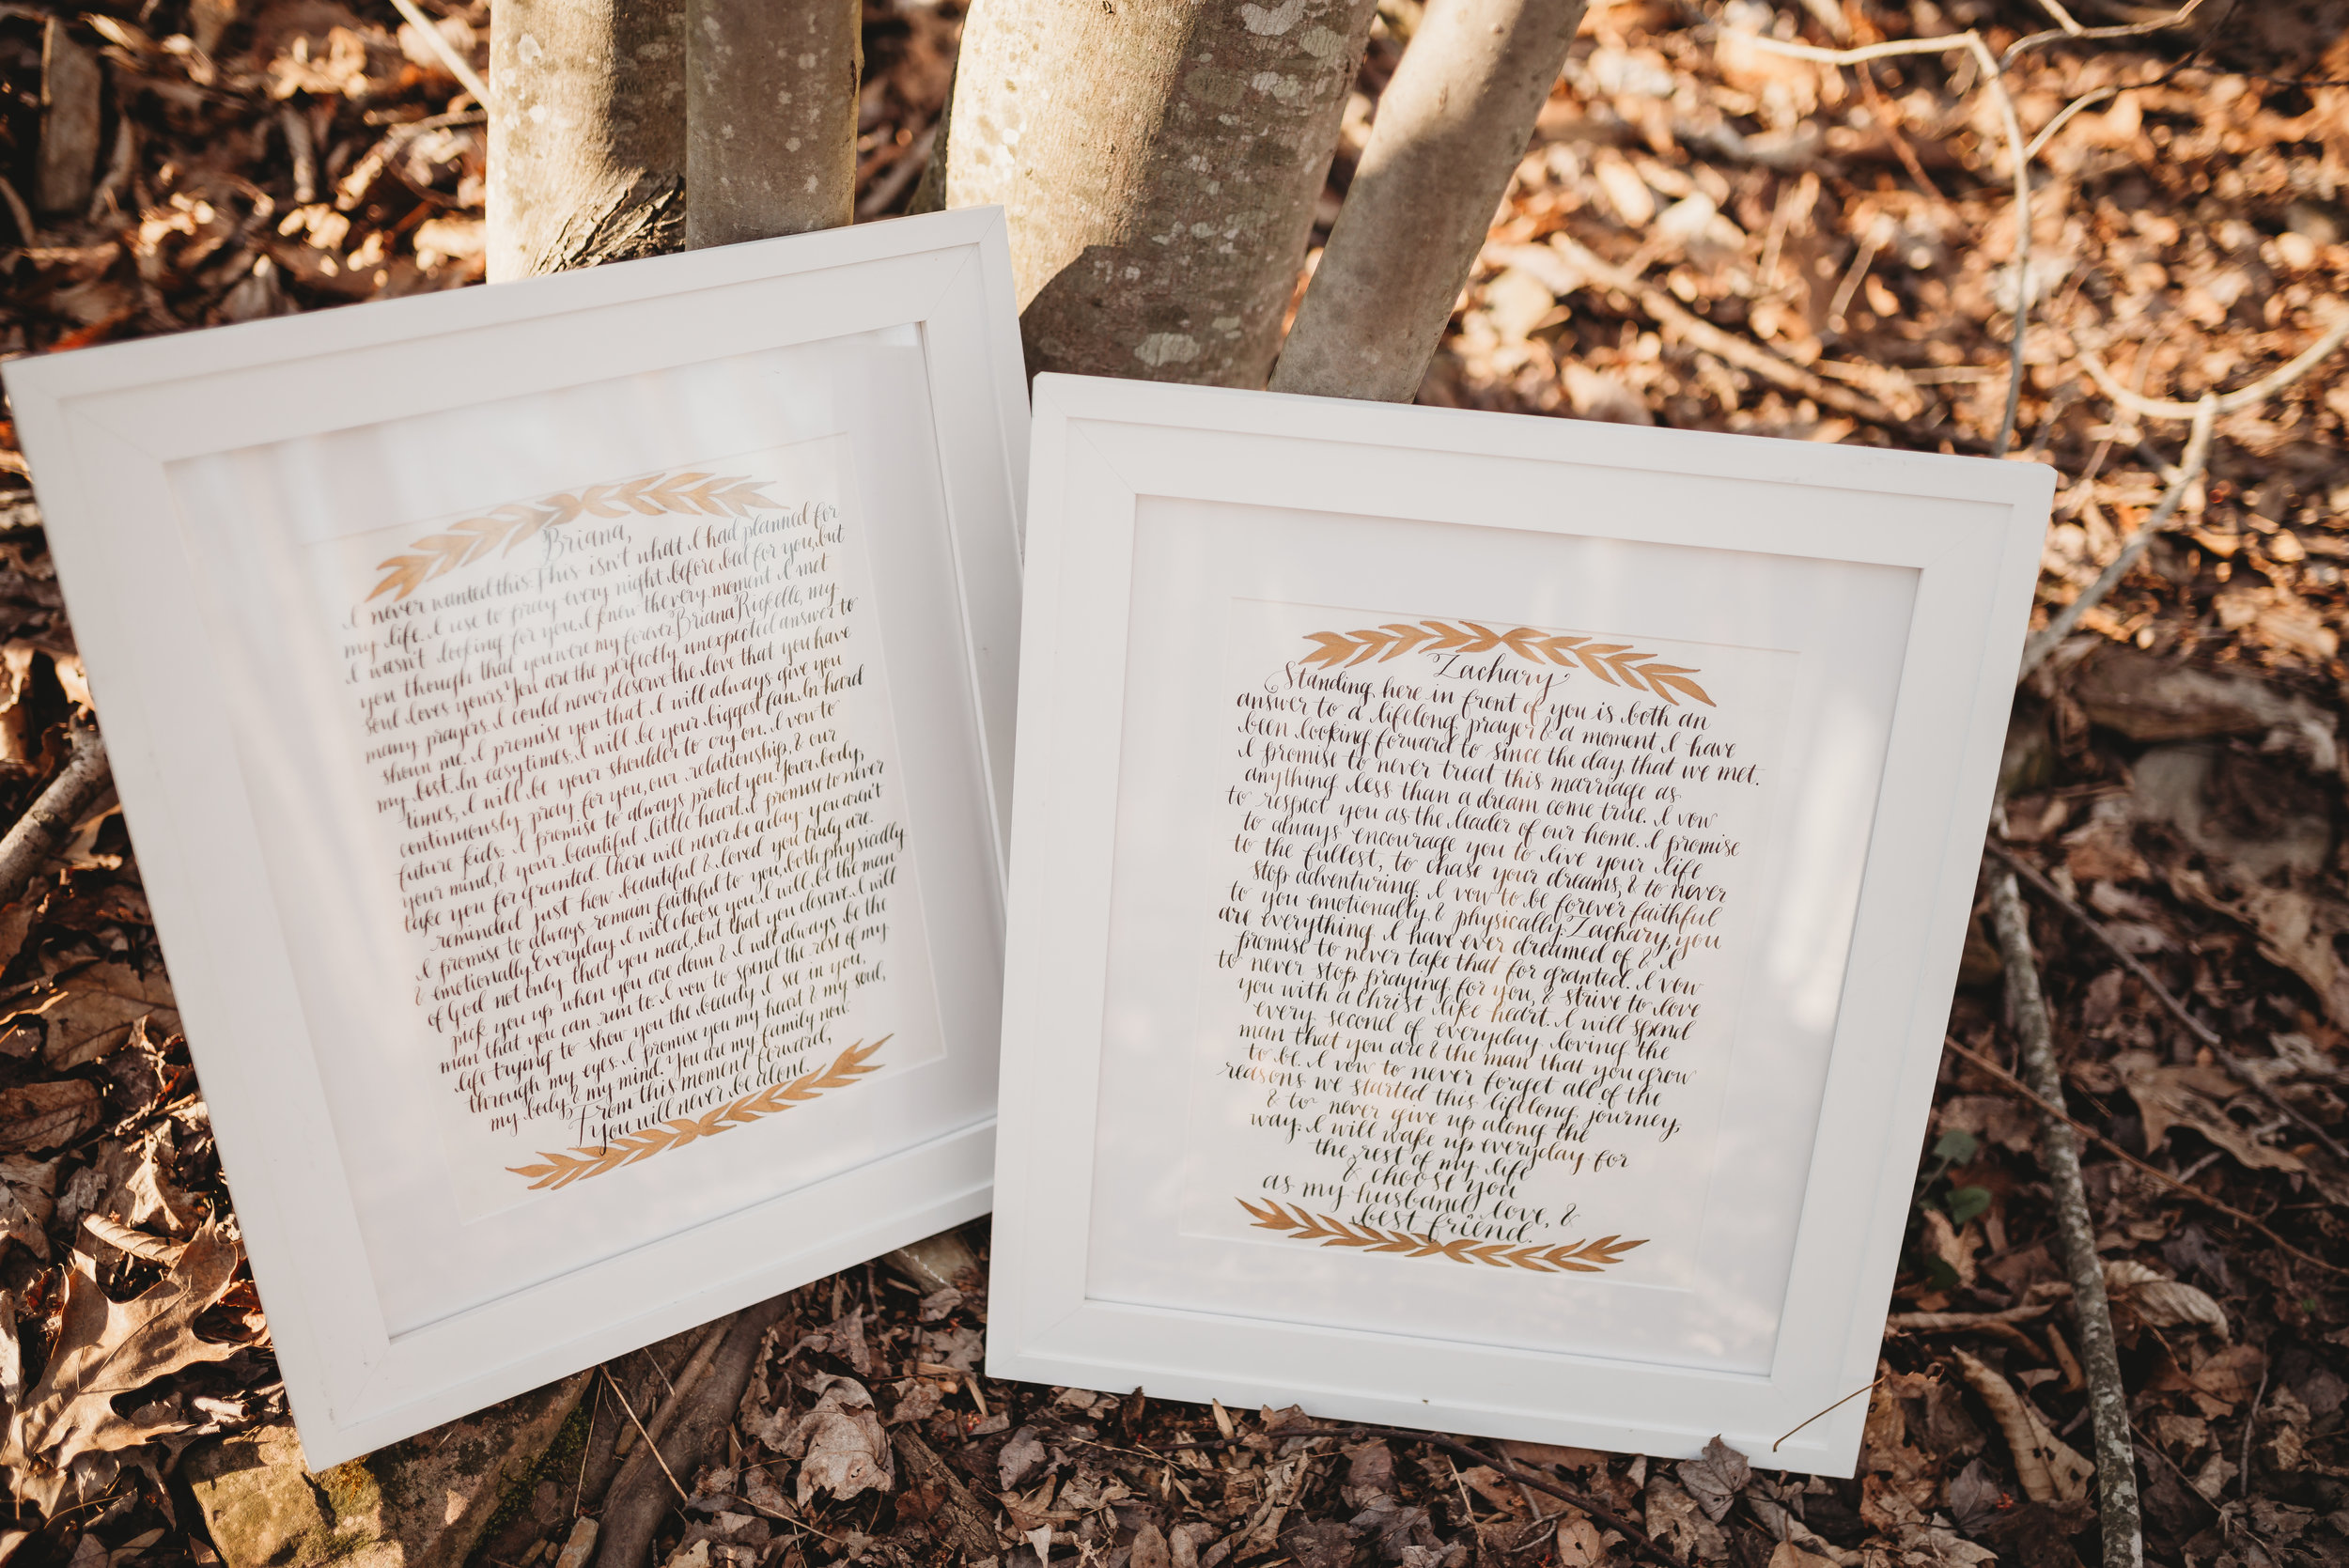 Briana,
I never wanted this. This isn't what I had planned for
my life. I use to pray every night before bed for you, but
I wasn't looking for you. I knew the very moment I met
you though that you were my forever. Briana Rickelle, my
soul loves yours. You are the perfectly unexpected answer to
many prayers. I could never deserve the love that you have
shown me. I promise you that I will always give you
my best. In easy times, I will be your biggest fan. In hard
times, I will be your shoulder to cry on. I vow to
continuously pray for you, our relationship, & our
future kids. I promise to always protect you. Your body,
your mind, & your beautiful little heart. I promise to never
take you for granted. There will never be a day you aren't
reminded just how beautiful & loved you truly are.
I promise to always remain faithful to you, both physically
& emotionally. Everyday I will choose you. I will be the man
of God not only that you need, but that you deserve. I will
pick you up when you are down & I will always be the
man that you can run to. I vow to spend the rest of my
life trying to show you the beauty I see in you,
through my eyes. I promise you my heart & my soul,
my body & my mind. You are my family now.
From this moment forward,
you will never be alone.
Zachary
Standing here in front of you is both an
answer to a lifelong prayer & a moment I have
been looking forward to since the day that we met.
I promise to never treat this marriage as
anything less than a dream come true. I vow
to respect you as the leader of our home. I promise
to always encourage you to live your life
to the fullest, to chase your dreams, & to never
stop adventuring. I vow to be forever faithful
to you emotionally & physically. Zachary, you
are everything I have ever dreamed of & I
promise to never take that for granted. I vow
to never stop praying for you, & strive to love
you with a Christ like heart. I will spend
every second of everyday loving the
man that you are & the man that you grow
to be. I vow to never forget all of the
reasons we started this lifelong journey,
& to never give up along the
way. I will wake up everyday for
the rest of my life
& choose you
as my husband, love, &
best friend.